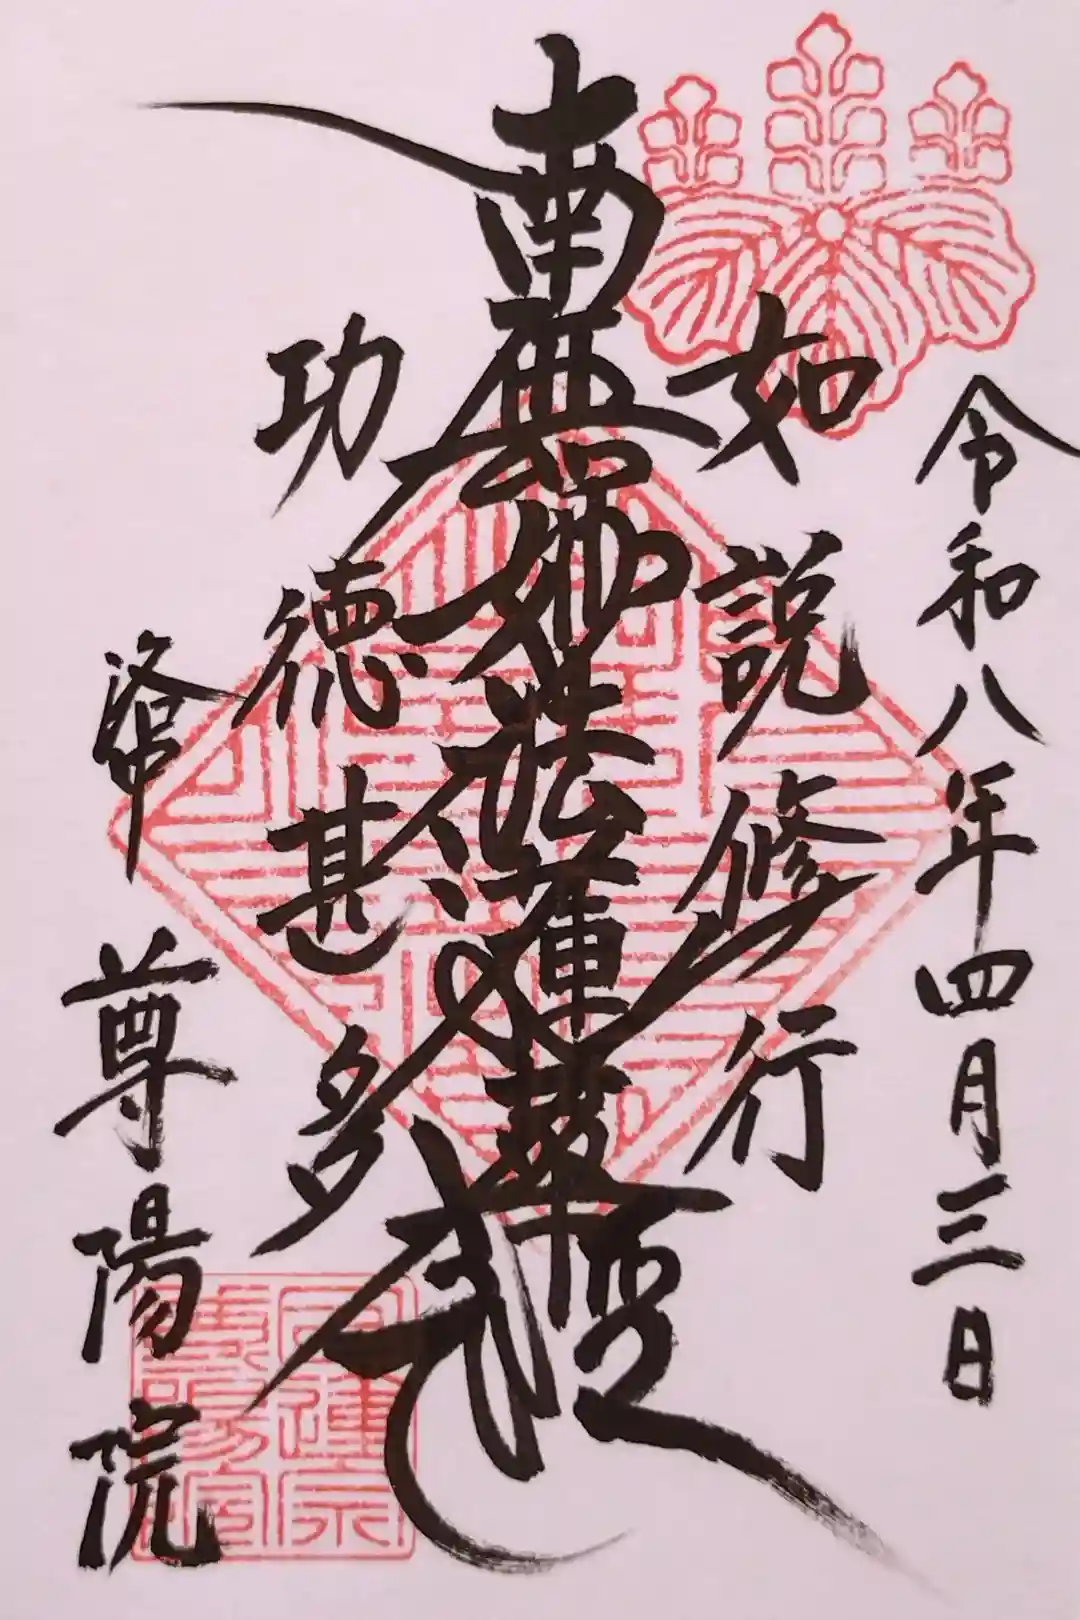 令和八年四月三日
如説修行
南無妙法蓮華經
功徳甚多
洛中 尊陽院